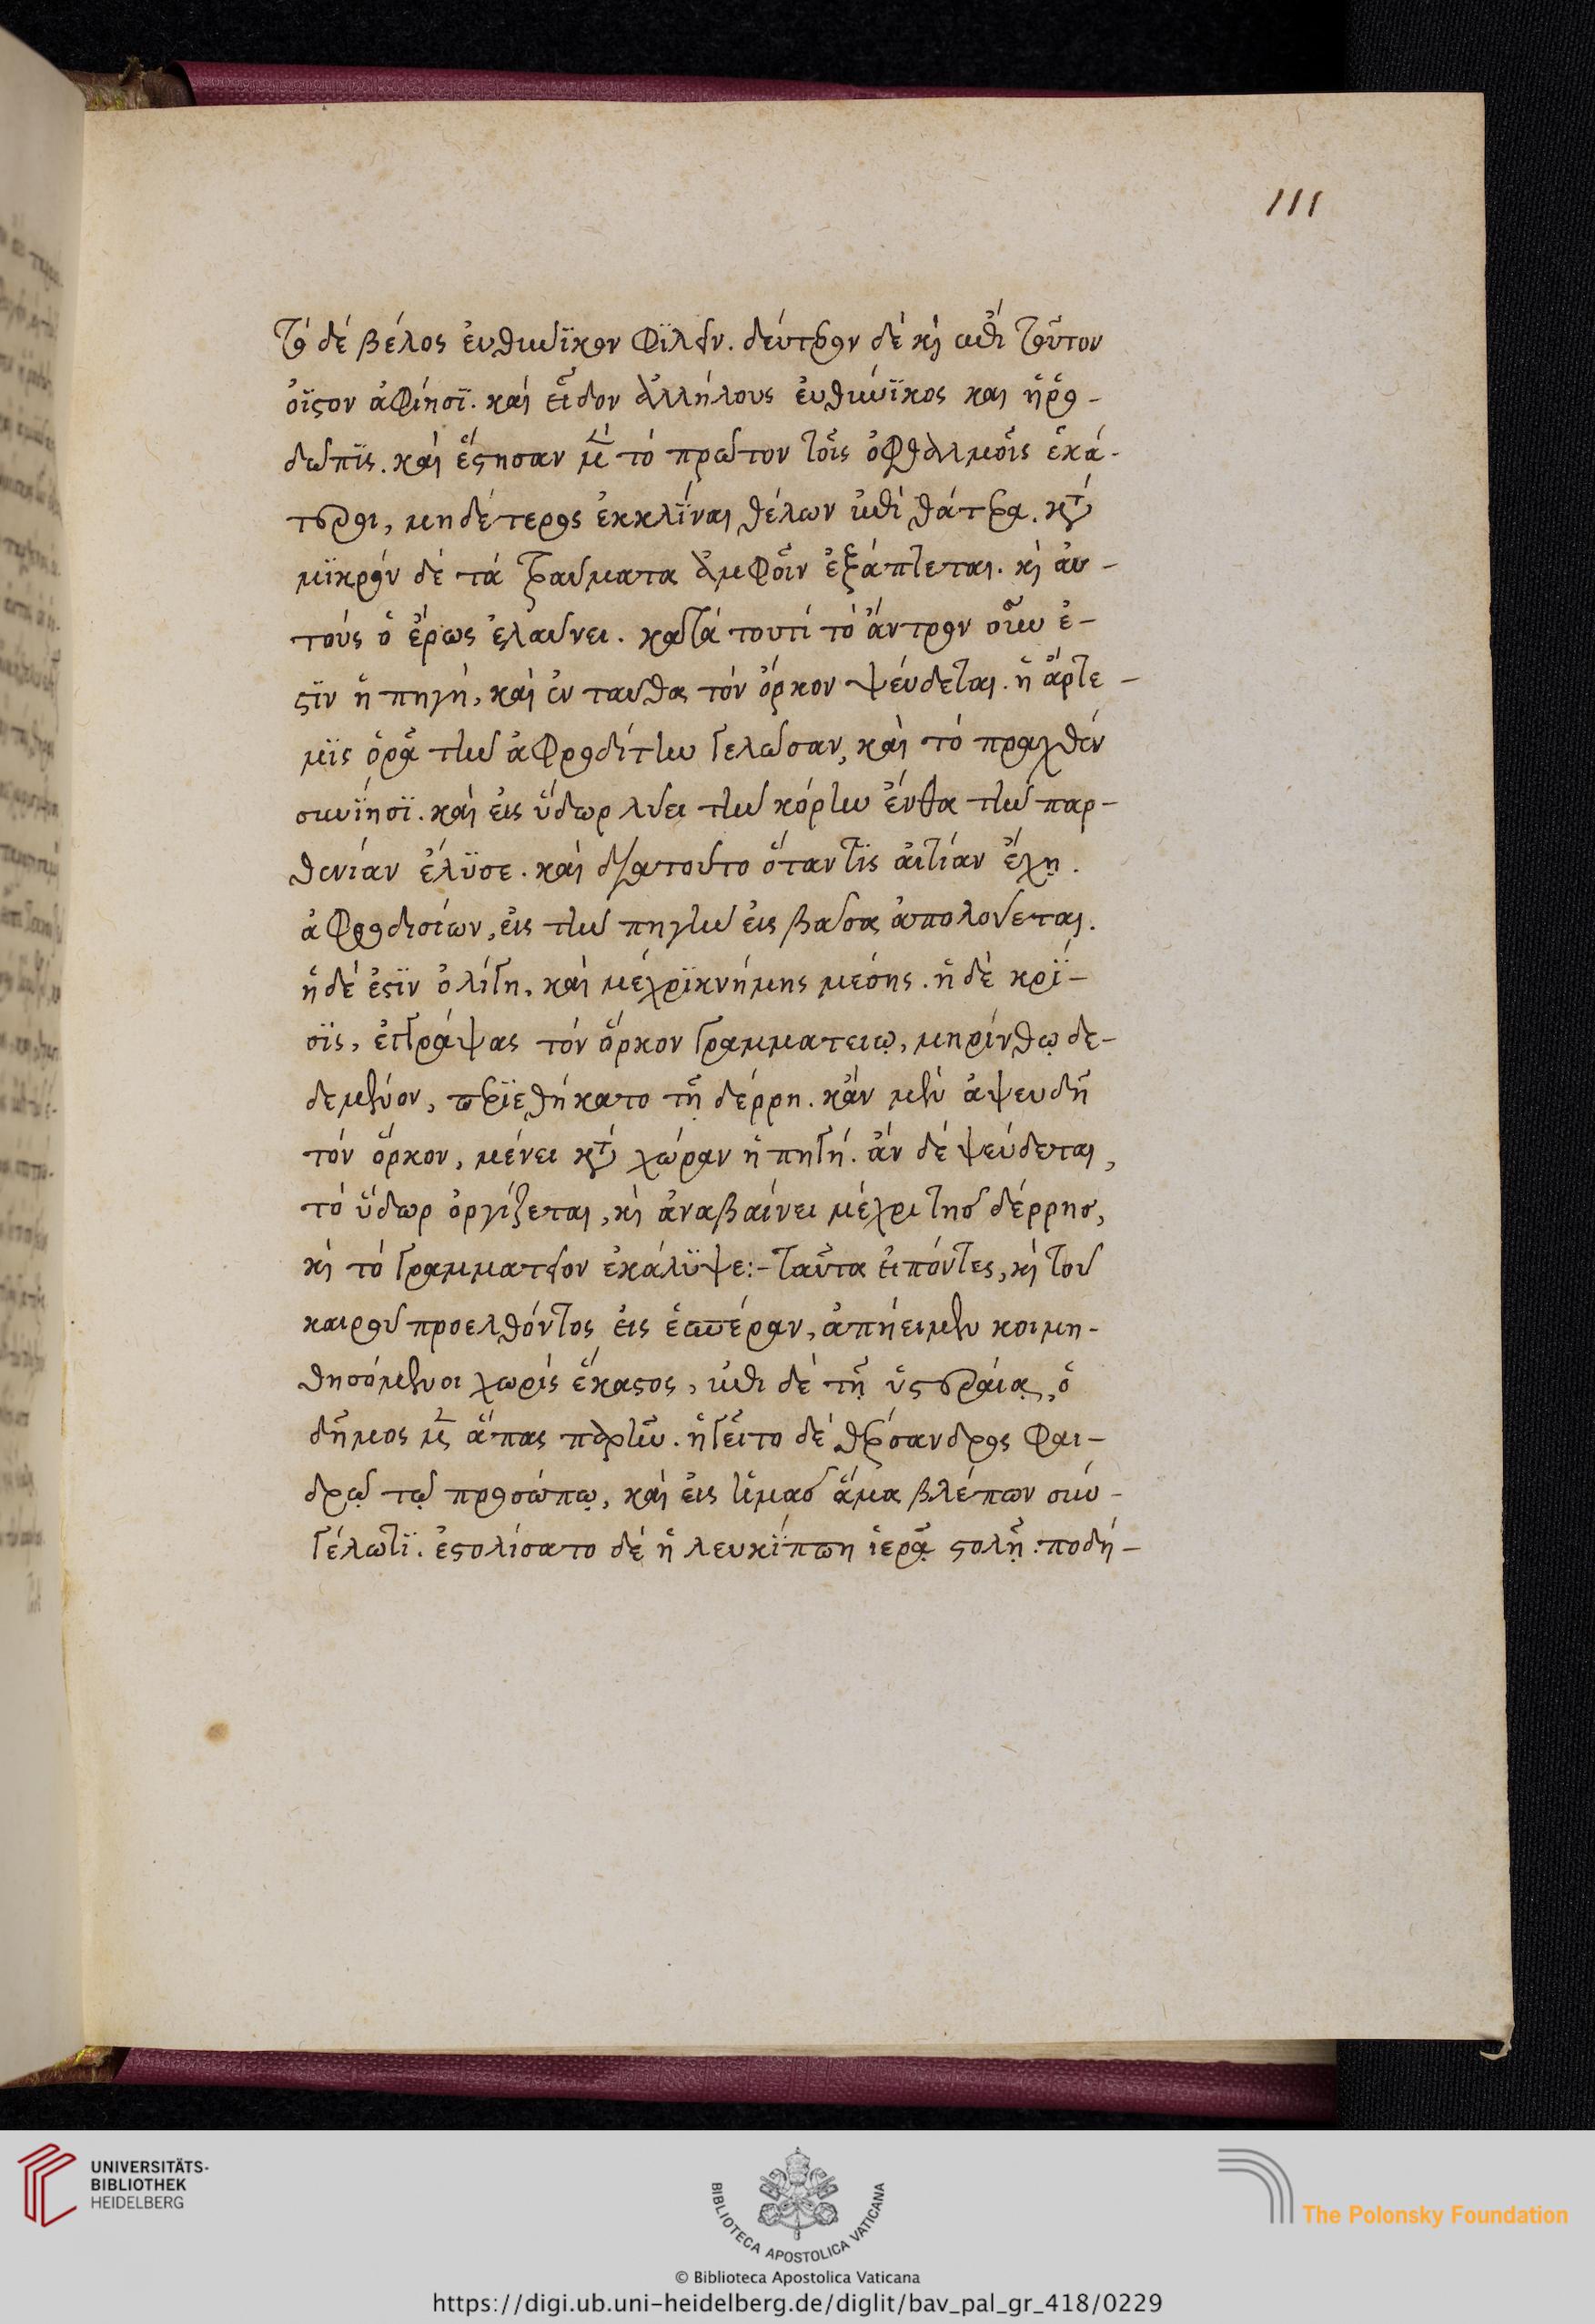 111
Τὸ δὲ βέλος ἐυθυνΐκον φΐλεῖν. δεύτερον δὲ κὶ ἐπὶ τοῦτον
ὀϊςὸν ἀφίησϊ. καὶ εἶδον ἀλλήλους ἐυθύνϊκος και ἡ ῥο-
δωπῒς. καὶ ἔςησαν μὲν τὸ πρῶτον τοῖς ὀφθαλμοῖς ἑκά-
τεροι, μηδέτερος ἐκκλῖναι θέλων ἐπὶ θάτερα. κτ
μϊκρὸν δὲ τὰ τραύματα ἀμφοῖν ἐξάπτεται. κὶ ἀυ-
τοὺς ὁ ἔρως ἐλαύνει. κατὰ τουτὶ τὸ ἄντρον οὗ νῦν ἐ-
ςῒν ἡ πηγὴ, καὶ ἐν ταυθα τὸν ὅρκον ψεύδεται. ἡ ἄρτε-
μϊς ὁρᾷ τὴν ἀφροδίτην γελῶσαν, καὶ τὸ πραχθὲν
συνΐησϊ. καὶ εἰς ὕδωρ λύει τὴν κόρην ἔνθα τὴν παρ-
θενίαν ἔλϋσε. καὶ διατοῦτο ὅταν τῒς ἀιτίαν ἔχῃ.
ἀφροδισίων, εἰς τὴν πηγὴν εἰς βᾶσα ἀπολούεται.
ἡ δέ ἐςϊν ὀλίγη, καὶ μέχρϊ κνήμης μέσης. ἡ δὲ κρί-
σϊς, ἐγγράψας τὸν ὅρκον γραμματειῳ, μηρίνθῳ δε-
δεμένον, περϊεθήκατο τῇ δέρρη. κἂν μὲν ἀψευδῆ
τὸν ὅρκον, μένει κτ χώραν ἡ πηγή. ἂν δὲ ψεύδεται,
τὸ ὕδωρ ὀργίζεται, κὶ ἀναβαίνει μέχρι τῆς δέρρης,
κὶ τὸ γραμματεῖον ἐκάλϋψε:- ταῦτα ἐιπόντες, κὶ τοῦ
καιροῦ προελθόντος εἰς ἑσπέραν, ἀπήειμεν κοιμη-
θησόμενοι χωρὶς ἕκαςος, ἐπι δὲ τῇ ὑςεραίᾳ, ὁ
δῆμος μὲν ἅπας παρῆν. ἡγεῖτο δὲ θέρσανδρος φαι-
δρῷ τῷ προσώπῳ, καὶ εἰς ἡμᾶς ἅμα βλέπων σὺν
γέλωτϊ. ἐςολίσατο δὲ ἡ λευκίππη ἱερᾷ ςολῇ. ποδή-
UNIVERSITÄTS-
BIBLIOTHEK
HEIDELBERG
BIBLIOTECA APOSTOLICA VATICANA
The Polonsky Foundation
© Biblioteca Apostolica Vaticana
https://digi.ub.uni-heidelberg.de/diglit/bav_pal_gr_418/0229